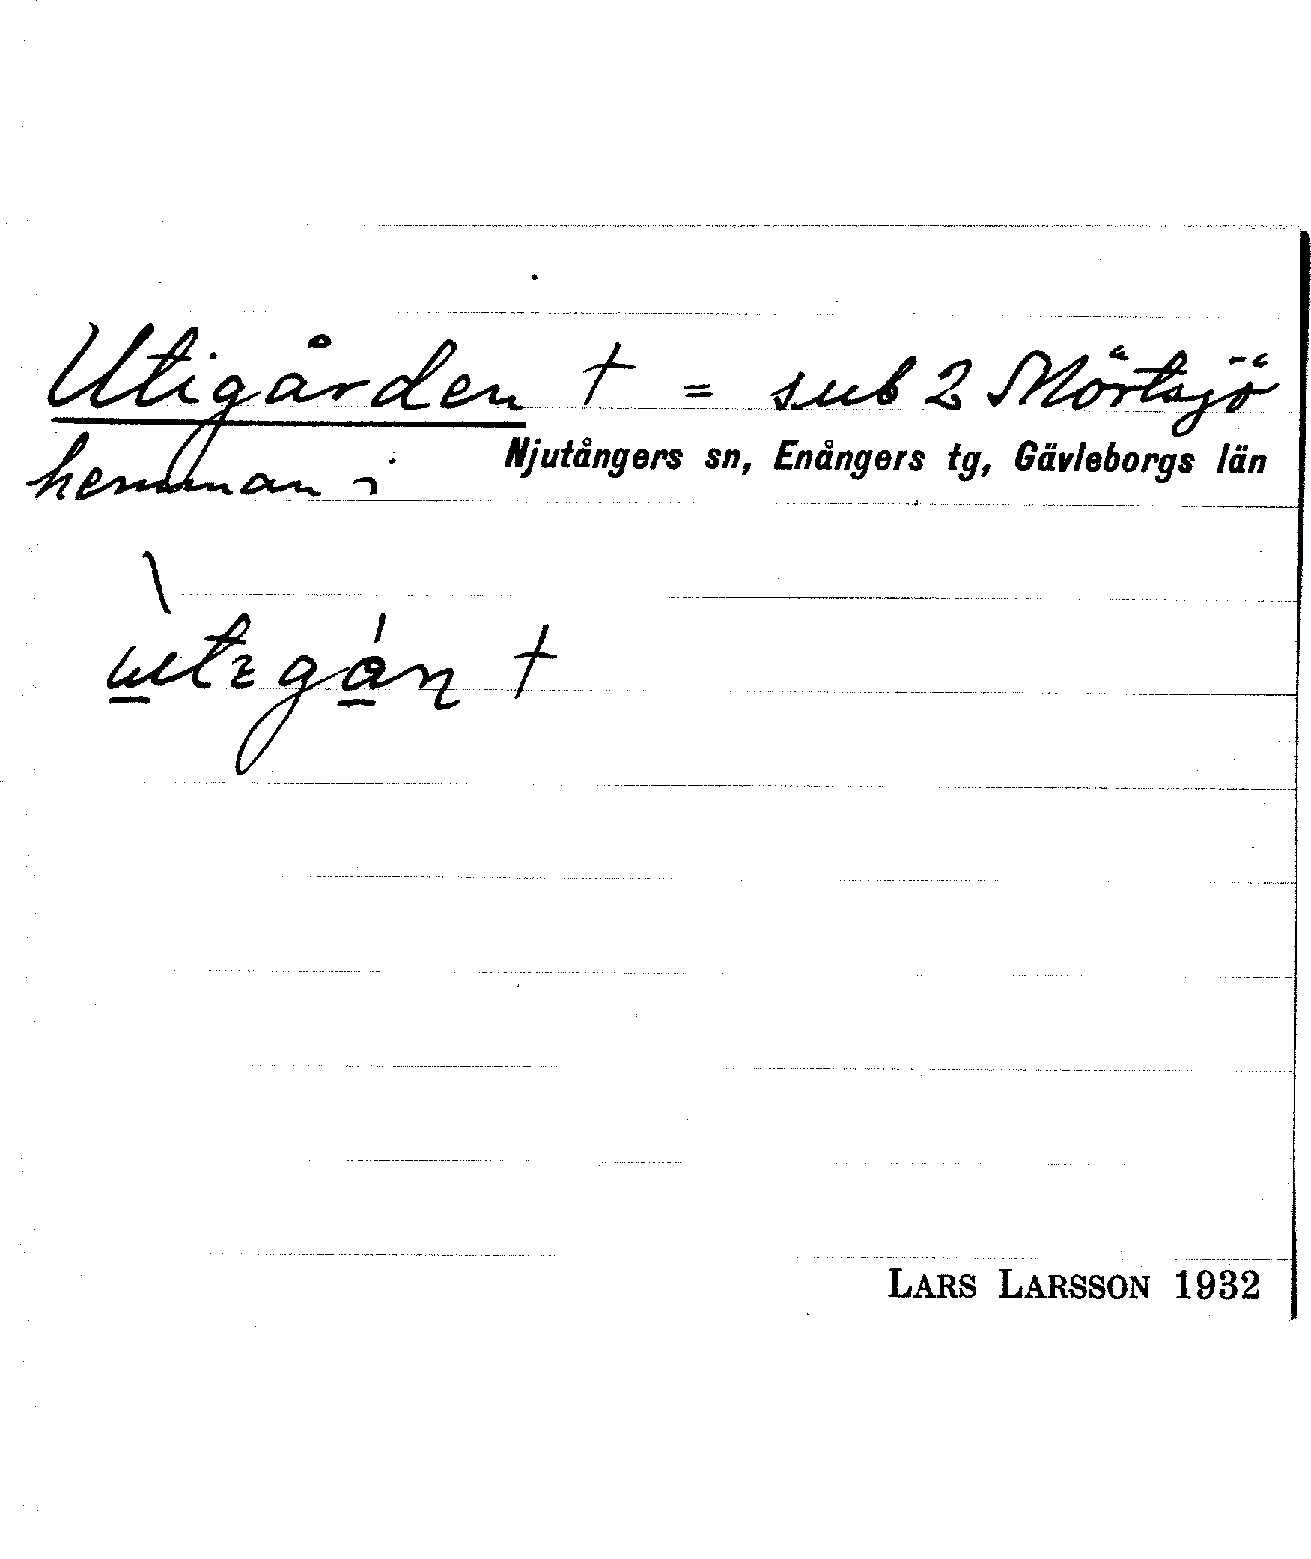 Utigården † = sub 2 Mörtsjö
hemman i Njutångers sn, Enångers tg, Gävleborgs län
LARS LARSSON 1932